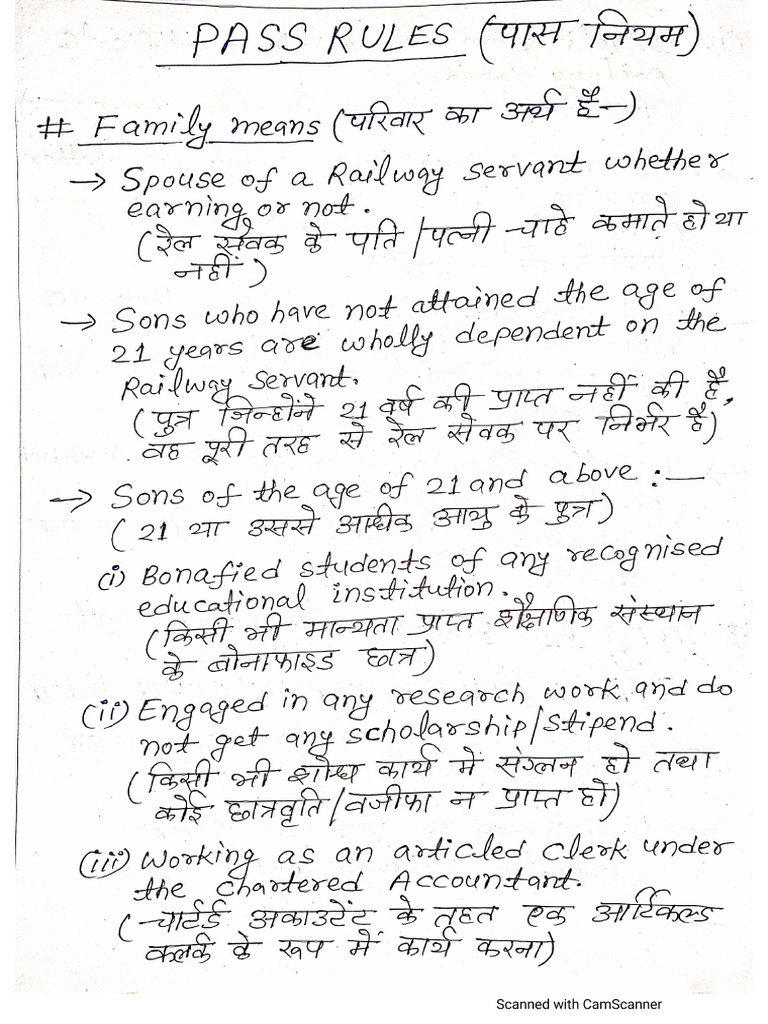 PASS RULES (पास नियम)
# Family means (परिवार का अर्थ है-)
→ Spouse of a Railway servant whether
earning or not.
(रेल सेवक के पति / पत्नी चाहे कमाते हो या
नहीं)
→ Sons who have not attained the age of
21 years are wholly dependent on the
Railway servant.
(पुत्र जिन्होंने 21 वर्ष की प्राप्त नहीं की है,
वह पूरी तरह से रेल सेवक पर निर्भर है)
→ Sons of the age of 21 and above :—
(21 या उससे अधीक आयु के पुत्र)
(i) Bonafied students of any recognised
educational institution.
(किसी भी मान्यता प्राप्त शैक्षणिक संस्थान
के बोनाफाइड छात्र)
(ii) Engaged in any research work, and do
not get any scholarship/stipend.
(किसी भी शोध कार्य में संग्लन हो तथा
कोई छात्रवृति/वजीफा न प्राप्त हो)
(iii) Working as an articled clerk under
the chartered Accountant.
(चार्टर्ड अकाउटेंट के तहत एक आर्टिकल्ड
क्लर्क के रूप में कार्य करना)
Scanned with CamScanner